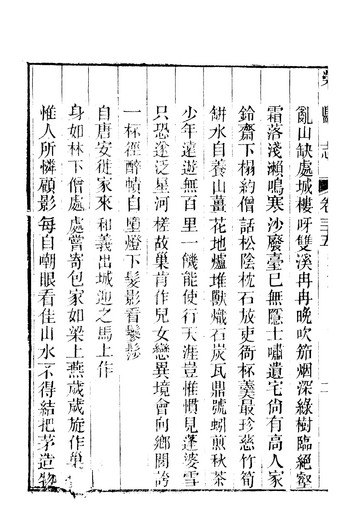 榮縣志 卷三五 二
亂山缺處城樓呀雙溪冉冉晚吹笳烟深綠樹臨絕壑
霜落淺瀨鳴寒沙廢臺已無隱士嘯遺宅尙有高人家
鈴齋下榻約僧話松陰枕石放吏衙杯羹最珍慈竹筍
缾水自養山薑花地爐堆獸熾石炭瓦鼎號蚓煎秋茶
少年遠遊無百里一饑能使行天涯豈惟慣見蓬婆雪
只恐遂泛星河槎故巢肯作兒女戀異境會向鄉閭誇
一杯徑醉幘自墮燈下髮影看鬖鬖
自唐安徙家來和義出城迎之馬上作
身如林下僧處處嘗寄包家如梁上燕歲歲旋作巢
惟人所憐顧影每自嘲眼看佳山水不得結把茅造物